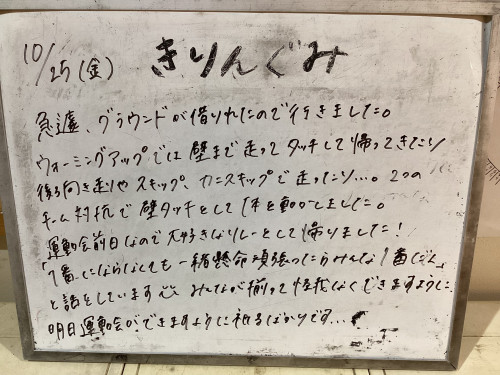 10/25(金)
きりんぐみ
急遽、グラウンドが借りれたので行きました。
ウォーミングアップでは壁まで走ってタッチして帰ってきたり
後ろ向き走りやスキップ、カニスキップで走ったり…。2つの
チーム対抗で壁タッチをして体を動かしました。
運動会前日なので大好きなリレーをして帰りました!
「1番にならなくても一生懸命頑張ったらみんな1番だよ」
と話をしています みんなが揃って怪我なくできますように
明日運動会ができますように祈るばかりです…